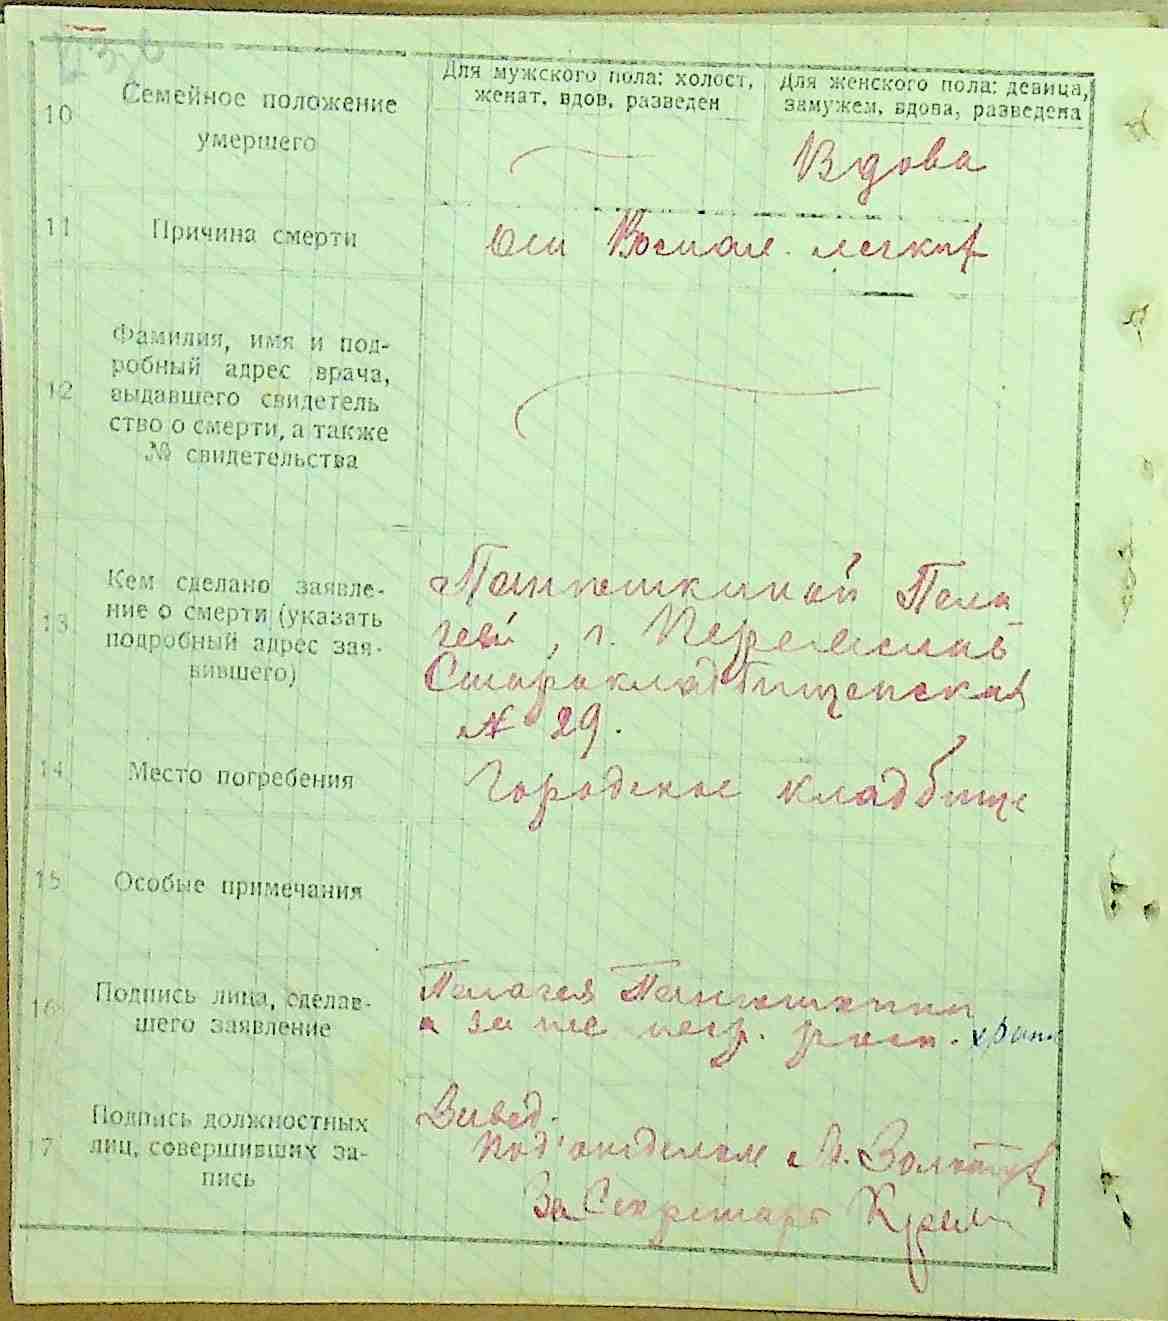 Для мужского пола: холост,
женат, вдов, разведен
Для женского пола: девица,
замужем, вдова, разведена
10
Семейное положение
умершего
Вдова
11
Причина смерти
Воспал. легких
12
Фамилия, имя и под-
робный адрес врача,
выдавшего свидетель
ство о смерти, а также
№ свидетельства
13
Кем сделано заявле-
ние о смерти (указать
подробный адрес зая-
вившего)
Пела
геей, г.
Старокладбищенская
№ 29.
14
Место погребения
Городское кладбище
15
Особые примечания
16
Подпись лица, сделав-
шего заявление
Пелагея
а за нее негр.
17
Подпись должностных
лиц, совершивших за-
пись
Завед.
Под'отделом
За Секретаря